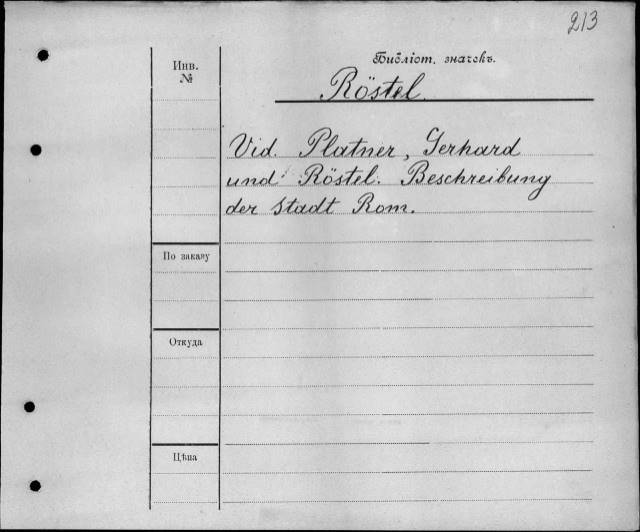 213
Инв.
№
Библіот. значекъ.
Röstel.
Vid. Platner, Gerhard
und Röstel. Beschreibung
der Stadt Rom.
По заказу
Откуда
Цѣна